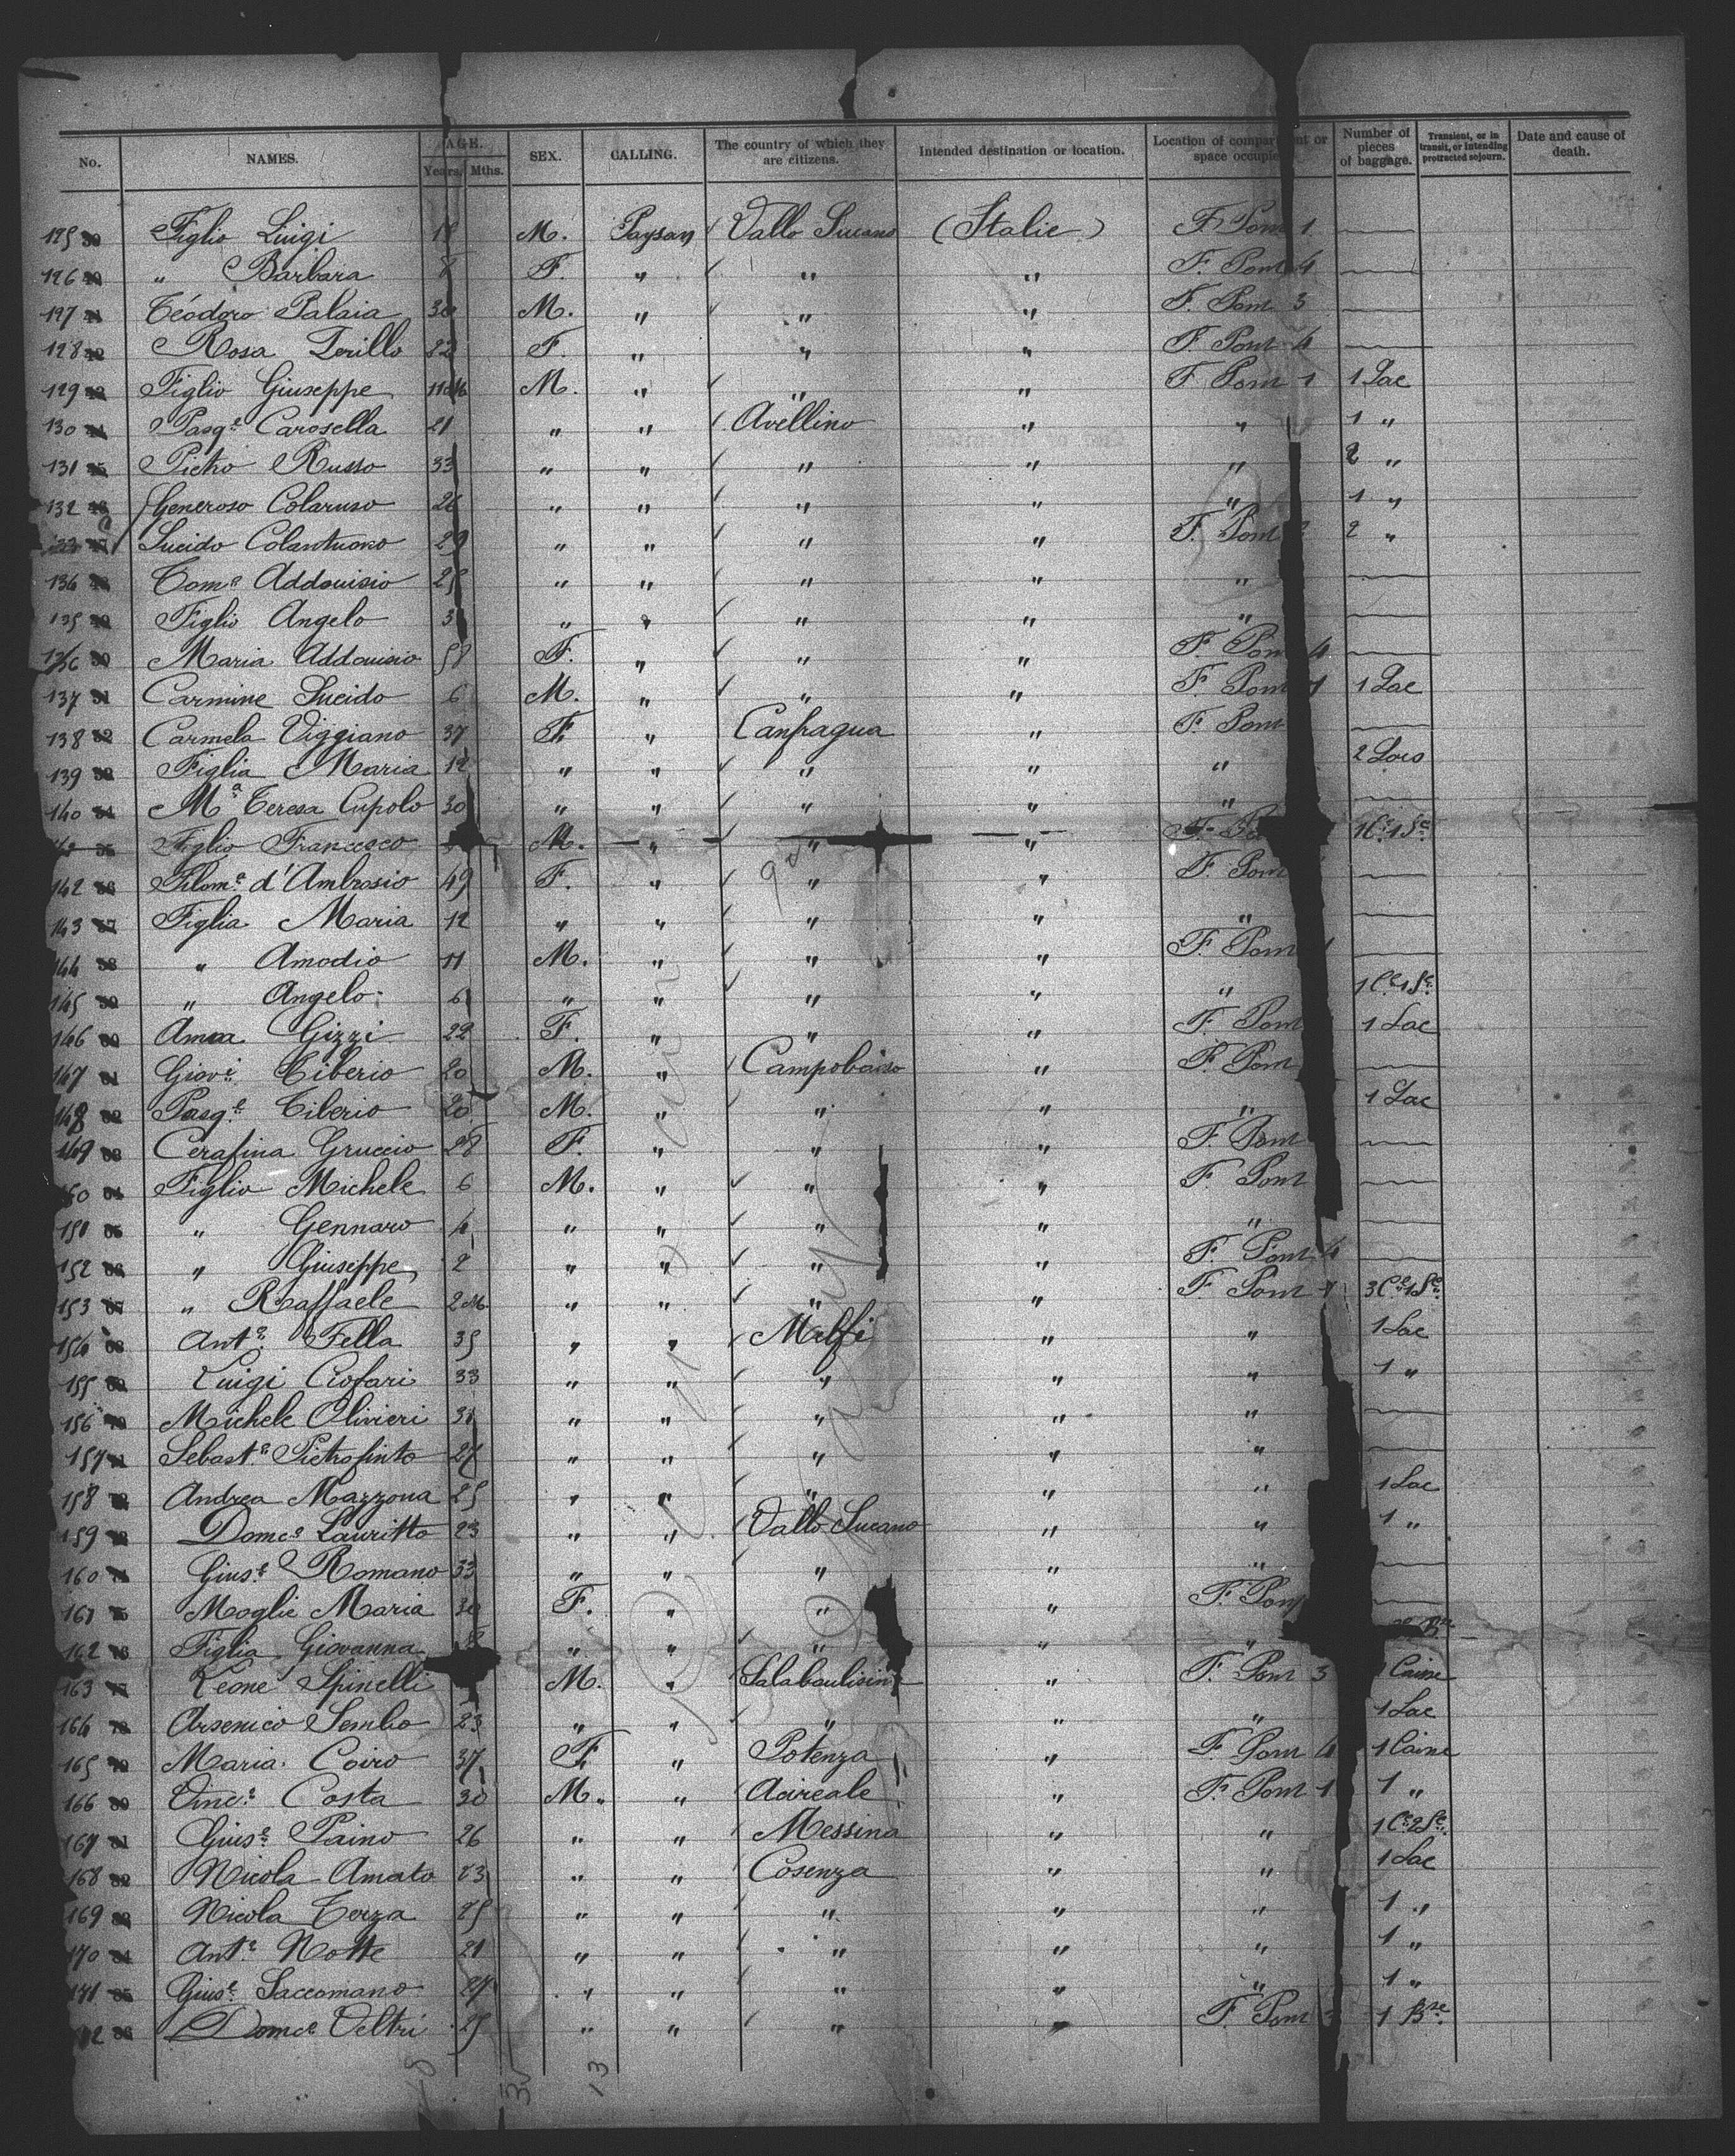 No. NAMES. AGE. Years. Mths. SEX. CALLING. The country of which they are citizens. Intended destination or location. Location of compartment or space occupied Number of pieces of baggage. Transient, or in transit, or intending protracted sejourn. Date and cause of death.
125 Figlio Luigi M. Paysan Vallo Lucano (Italie) F. Pont 1
126 " Barbara 8 F. " " " F. Pont 4
127 Teódoro Palaia 30 M. " " " F. Pont 3
128 Rosa Terillo 22 F. " " " F. Pont 4
129 Figlio Giuseppe 11 M M. " " " F Pont 1 1 Sac
130 Pasqe Carosella 21 " " Avellino " " 1 "
131 Pietro Russo 33 " " " " " 2 "
132 Generoso Colaruso 26 " " " " " 1 "
133 Lucido Colantuono 29 " " " " F. Pont 2 "
134 Toms Addouisio 25 " " " " "
135 Figlio Angelo 3 " " " " "
136 Maria Addouisio 58 F. " " " F. Pont 4
137 Carmine Lucido 6 M. " " " F. Pont 1 1 Sac
138 Carmela Viggiano 37 F. " Canfragua " F. Pont
139 Figlia Maria 12 " " " " " 2 Sacs
140 Ma Teresa Cupolo 30 " " " " "
Figlio Francesco M. " " " F. 1 Ce 1 Se
142 Filome d'Ambrosio 49 F. " " " F. Pont
143 Figlia Maria 12 " " " " "
144 " Amodio 11 M. " " " F. Pont 1
145 " Angelo 6 " " " " " 1 Ce 1 Se
146 Anna Gizzi 22 F. " " " F. Pont 1 Sac
147 Giovi Tiberio 20 M. " Campobasso " F. Pont
148 Pasqe Tiberio 20 M. " " " " 1 Sac
149 Cerafina Gruccio 28 F. " " " F. Pont
150 Figlio Michele 6 M. " " " F. Pont
151 " Gennaro 4 " " " " "
152 " Giuseppe 2 " " " " F. Pont 4
153 " Raffaele 2 M. " " " " F. Pont 1 3 Ce 1 Se
154 Anto Fella 35 " " Melfi " " 1 Sac
155 Luigi Ciofari 33 " " " " " 1 "
156 Michele Olivieri 31 " " " " "
157 Sebast. Pietrofinto 27 " " " " "
158 Andrea Mazzoua 25 " " " " " 1 Sac
159 Domco Lauritto 23 " " Vallo Lucano " " 1 "
160 Giuse Romano 33 " " " " "
161 Moglie Maria 30 F. " " " F. Pont
162 Figlia Giovanna " " " " "
163 Leone Spinelli M. " " F. Pont 3 Caisse
164 Arsenico Sembo 23 " " " " " 1 Sac
165 Maria Coiro 37 F. " Potenza " F. Pont 4 1 Caisse
166 Vince Costa 30 M. " Acireale " F. Pont 1 1 "
167 Giuse Paino 26 " " Messina " " 1 Ce 2 Se
168 Nicola Amato 23 " " Cosenza " " 1 Sac
169 Nicola Terza 25 " " " " " 1 "
170 Anto Notte 21 " " " " " 1 "
171 Giuse Saccomano 27 " " " " " 1 "
Domco Veltri 25 " " " " F. Pont 1 Bse
13